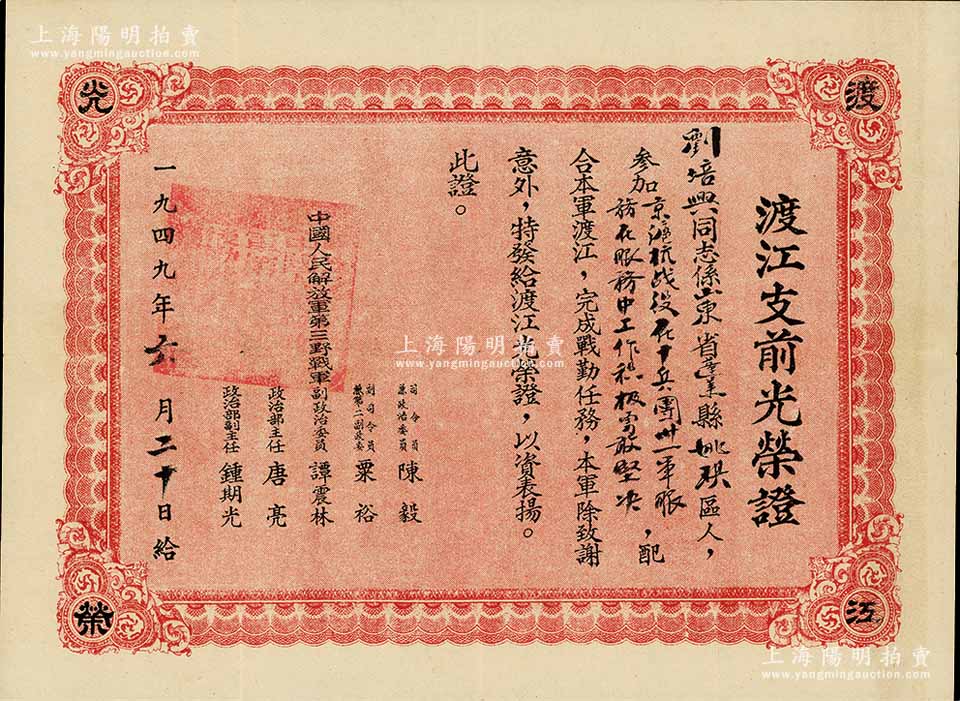 上海陽明拍賣
www.yangmingauction.com
渡江
光榮
渡江支前光榮證
劉培興同志係山東省蓬萊縣 區人，
参加京滬杭战役在十兵團卅一軍服
務在服務中工作积极勇敢堅决，配
合本軍渡江，完成戰勤任務，本軍除致謝
意外，特發給渡江光榮證，以資表揚。
此證。
中國人民解放軍第三野戰軍
司令員兼政治委員 陳毅
副司令員兼第二副政委 粟裕
副政治委員 譚震林
政治部主任 唐亮
政治部副主任 鍾期光
一九四九年六月二十日給
上海陽明拍賣
www.yangmingauction.com
上海陽明拍賣
www.yangmingauction.com